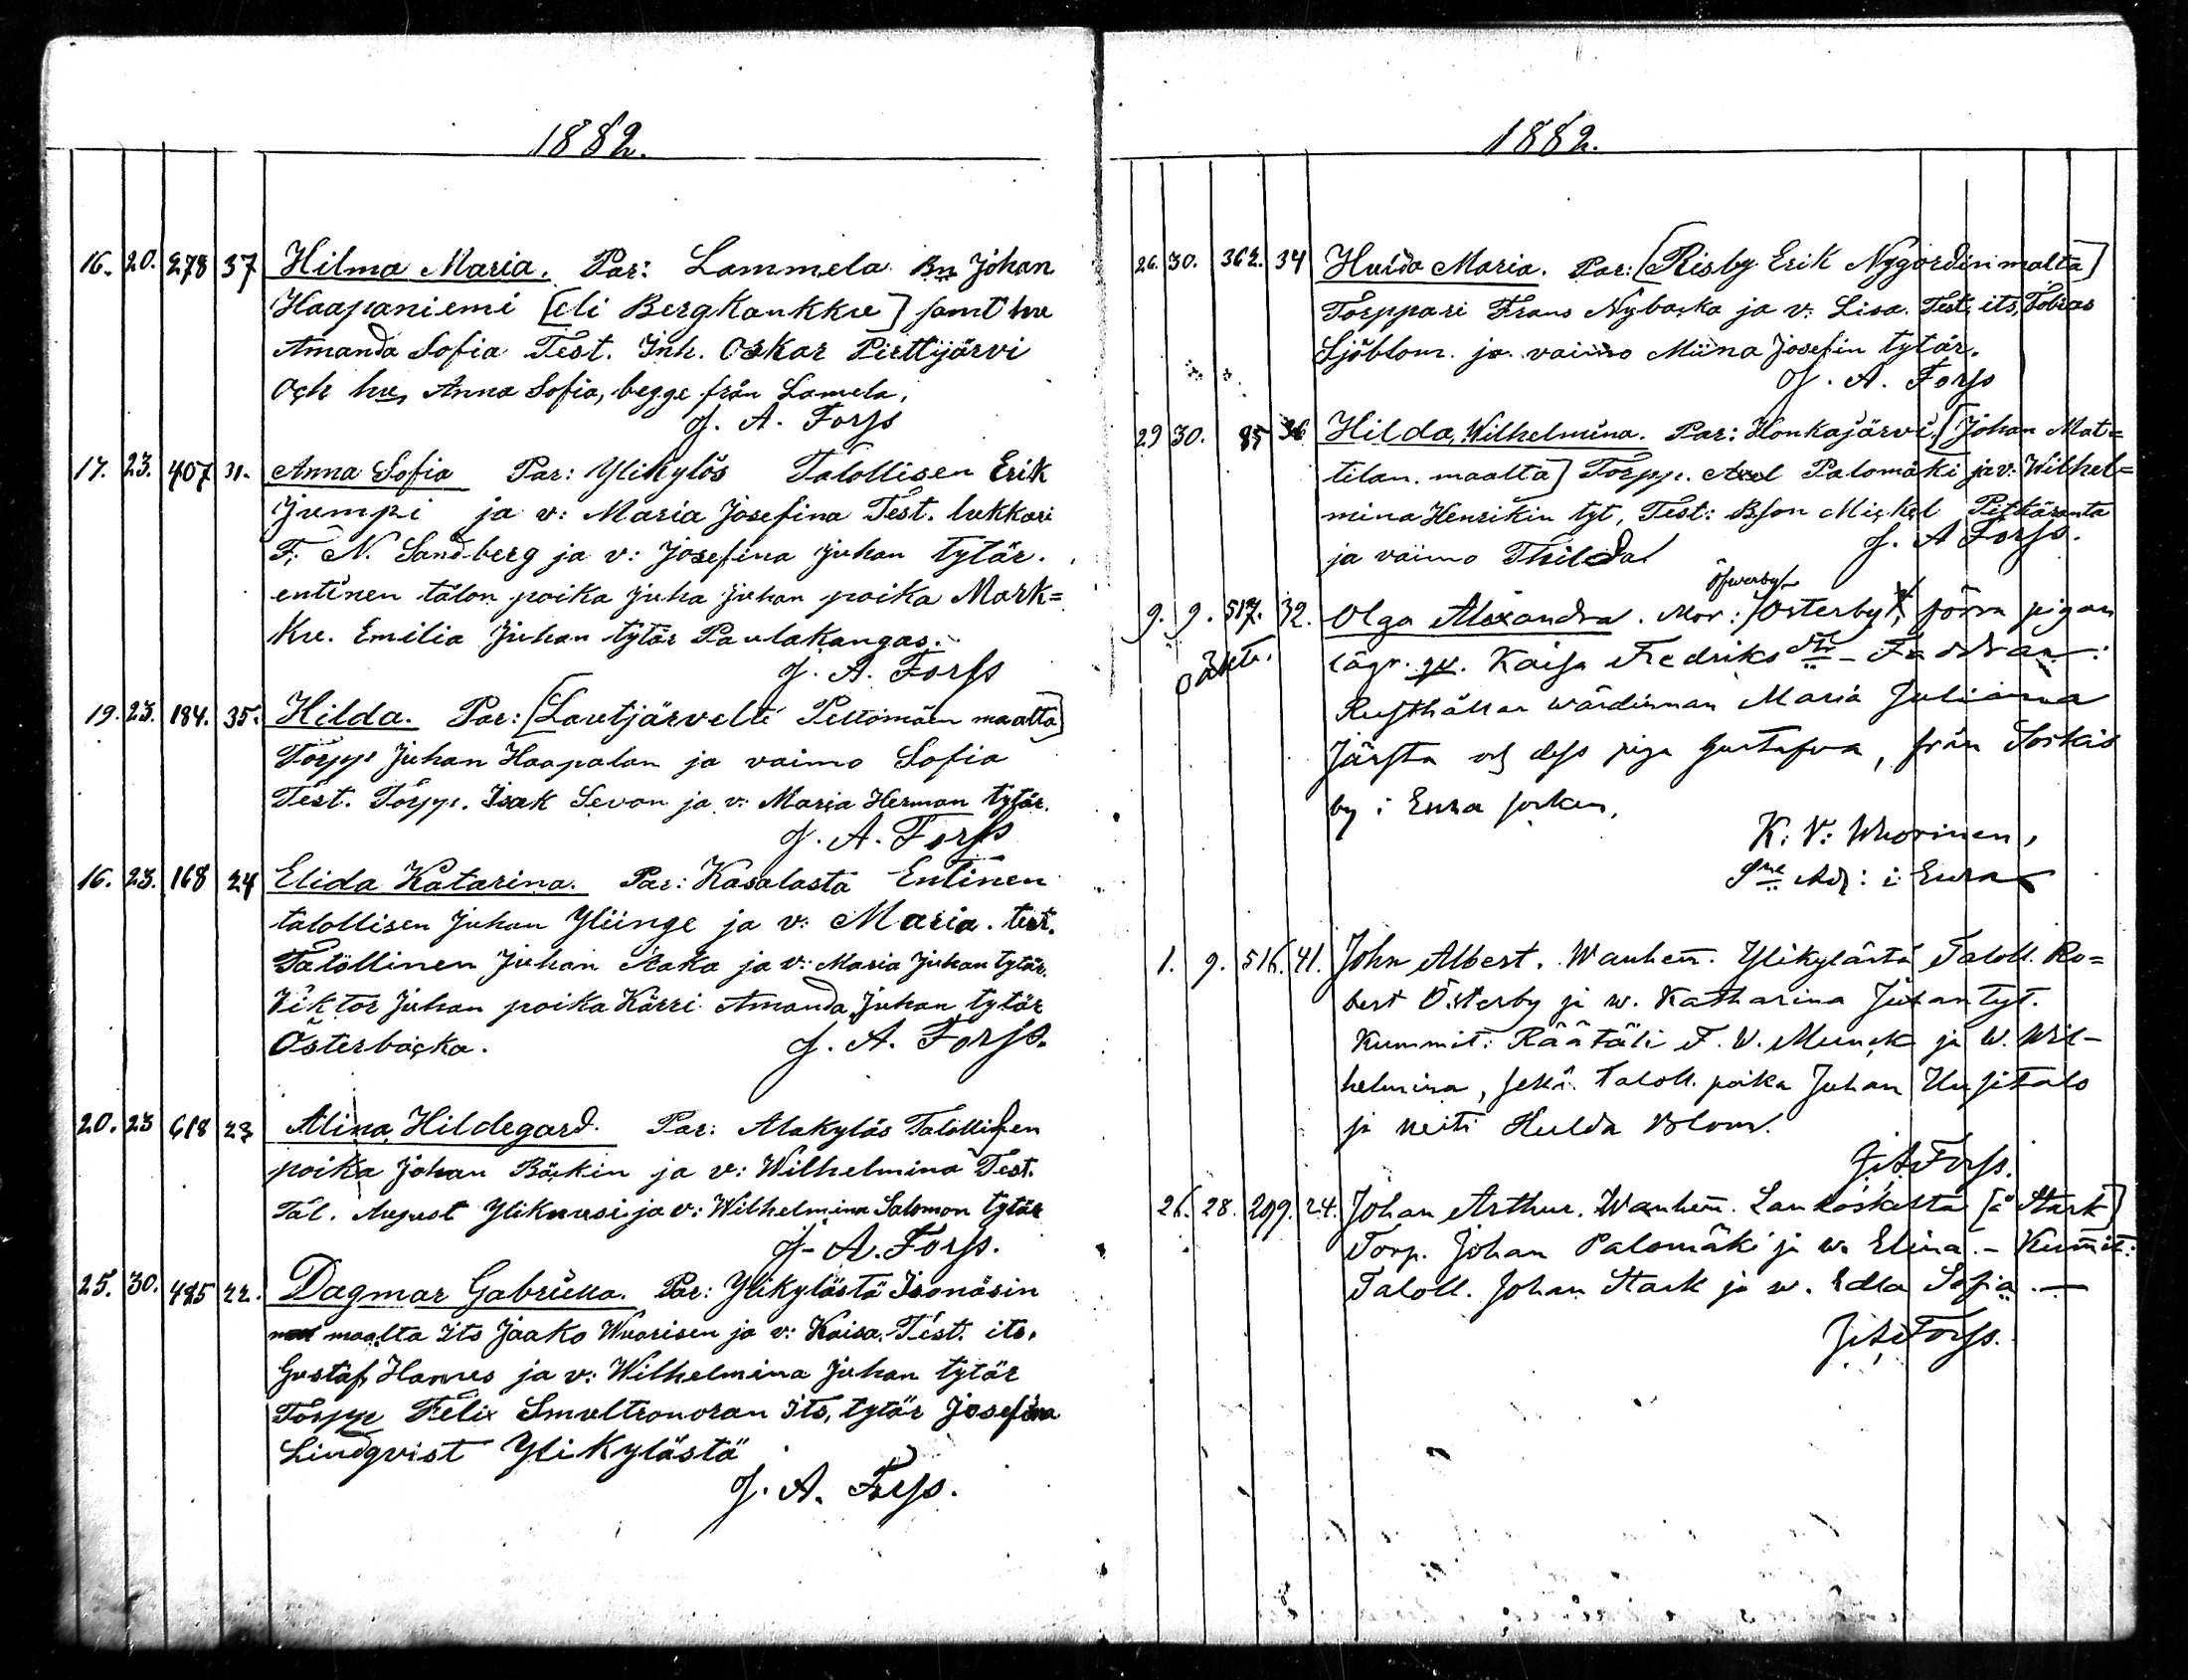 1882.
16. 20. 278 37 Hilma Maria. Par: Lammela Bn Johan
Haapaniemi [eli Bergkaukku] samt hu
Amanda Sofia Test. Inh. Oskar Pirttijärvi
Och hu, Anna Sofia, begge från Lamela,
J. A. Forss
17. 23. 407 31. Anna Sofia Par: Ylikylös Talollisen Erik
Jumpi ja v: Maria Josefina Test. lukkari
F. N. Sandberg ja v: Josefina Juhan tytär.
entinen talon poika Juha Juhan poika Mark=
ku. Emilia Juhan tytär Paulakangas.
J. A. Forss
19. 23. 184. 35. Hilda. Par: [Lautjärvelte Peltomäen maalta]
Torpp Juhan Haapalan ja vaimo Sofia
Test. Torpp. Isak Levon ja v: Maria Herman tytär.
J. A. Forss
16. 23. 168 24 Elida Katarina. Par: Kasalasta Entinen
talollisen Juhan Yliinge ja v: Maria. test.
Talöllinen Juhan Kaka ja v: Maria Juhan tytär.
Viktor Juhan poika Kärri Amanda Juhan tytär
Österbacka. J. A. Forss.
20. 23 618 23 Alina Hildegard. Par: Alakylös Talollisen
poika Johan Bäckin ja v: Wilhelmina Test.
Tal. August Ylikuusi ja v: Wilhelmina Salomon tytär
J. A. Forss.
25. 30. 485 22. Dagmar Gabriella. Par: Ylikylästä Isonäsin
maalta Its Jaako Wuorisen ja v: Kaisa. Test. its.
Gustaf Hannes ja v: Wilhelmina Juhan tytär
Torpp Felix Smultronoran Its, tytär Josefina
Lindqvist Ylikylästä
J. A. Forss.
1882.
26. 30. 362. 34 Hulda Maria. Par: [Risby Erik Nygordin malta]
Torppari Frans Nybacka ja v: Lisa. Test, its, Tobias
Sjöblom. ja vaimo Miina Josefin tytär.
J. A. Forss
29 30. 85 36 Hilda Wilhelmina. Par: Honkajärvi, [Johan Mat=
tilan. maalta] Torpp. Axel Palomäki ja v: Wilhel=
mina Henrikin tyt, Test: Bson Mickel Pitkäranta
ja vaimo Thilda! J. A Forss.
Öfwerby
9. 9. 517. 32. Olga Alexandra. Mor: Osterby, förra pigan
lägr. qv. Kaisa Fredriks dtr - Faddrar:
Rusthållar wärdinnan Maria Juliana
Järsta och dess piga Gustafva, från Sorkis
by i Eura socken,
K: V: Wuorinen,
Adj: i Eura
1. 9. 516. 41. John Albert. Wanhem. Ylikylästä Taloll. Ro=
bert Österby ja w. Katharina Juhan tyt.
Kummit: Räätäli F. W. Munck ja W. Wil-
helmina, sekä Taloll. poika Juhan Uusitalo
ja neiti Hulda Blom.
J. A. Forss.
26. 28. 299. 24. Johan Arthur. Wanhem. Lankoskasta [å Stark]
Torp. Johan Palomäki ja w. Elina. - Kummit:
Taloll. Johan Stark ja w. Edla Sofia. —
J. A. Forss.